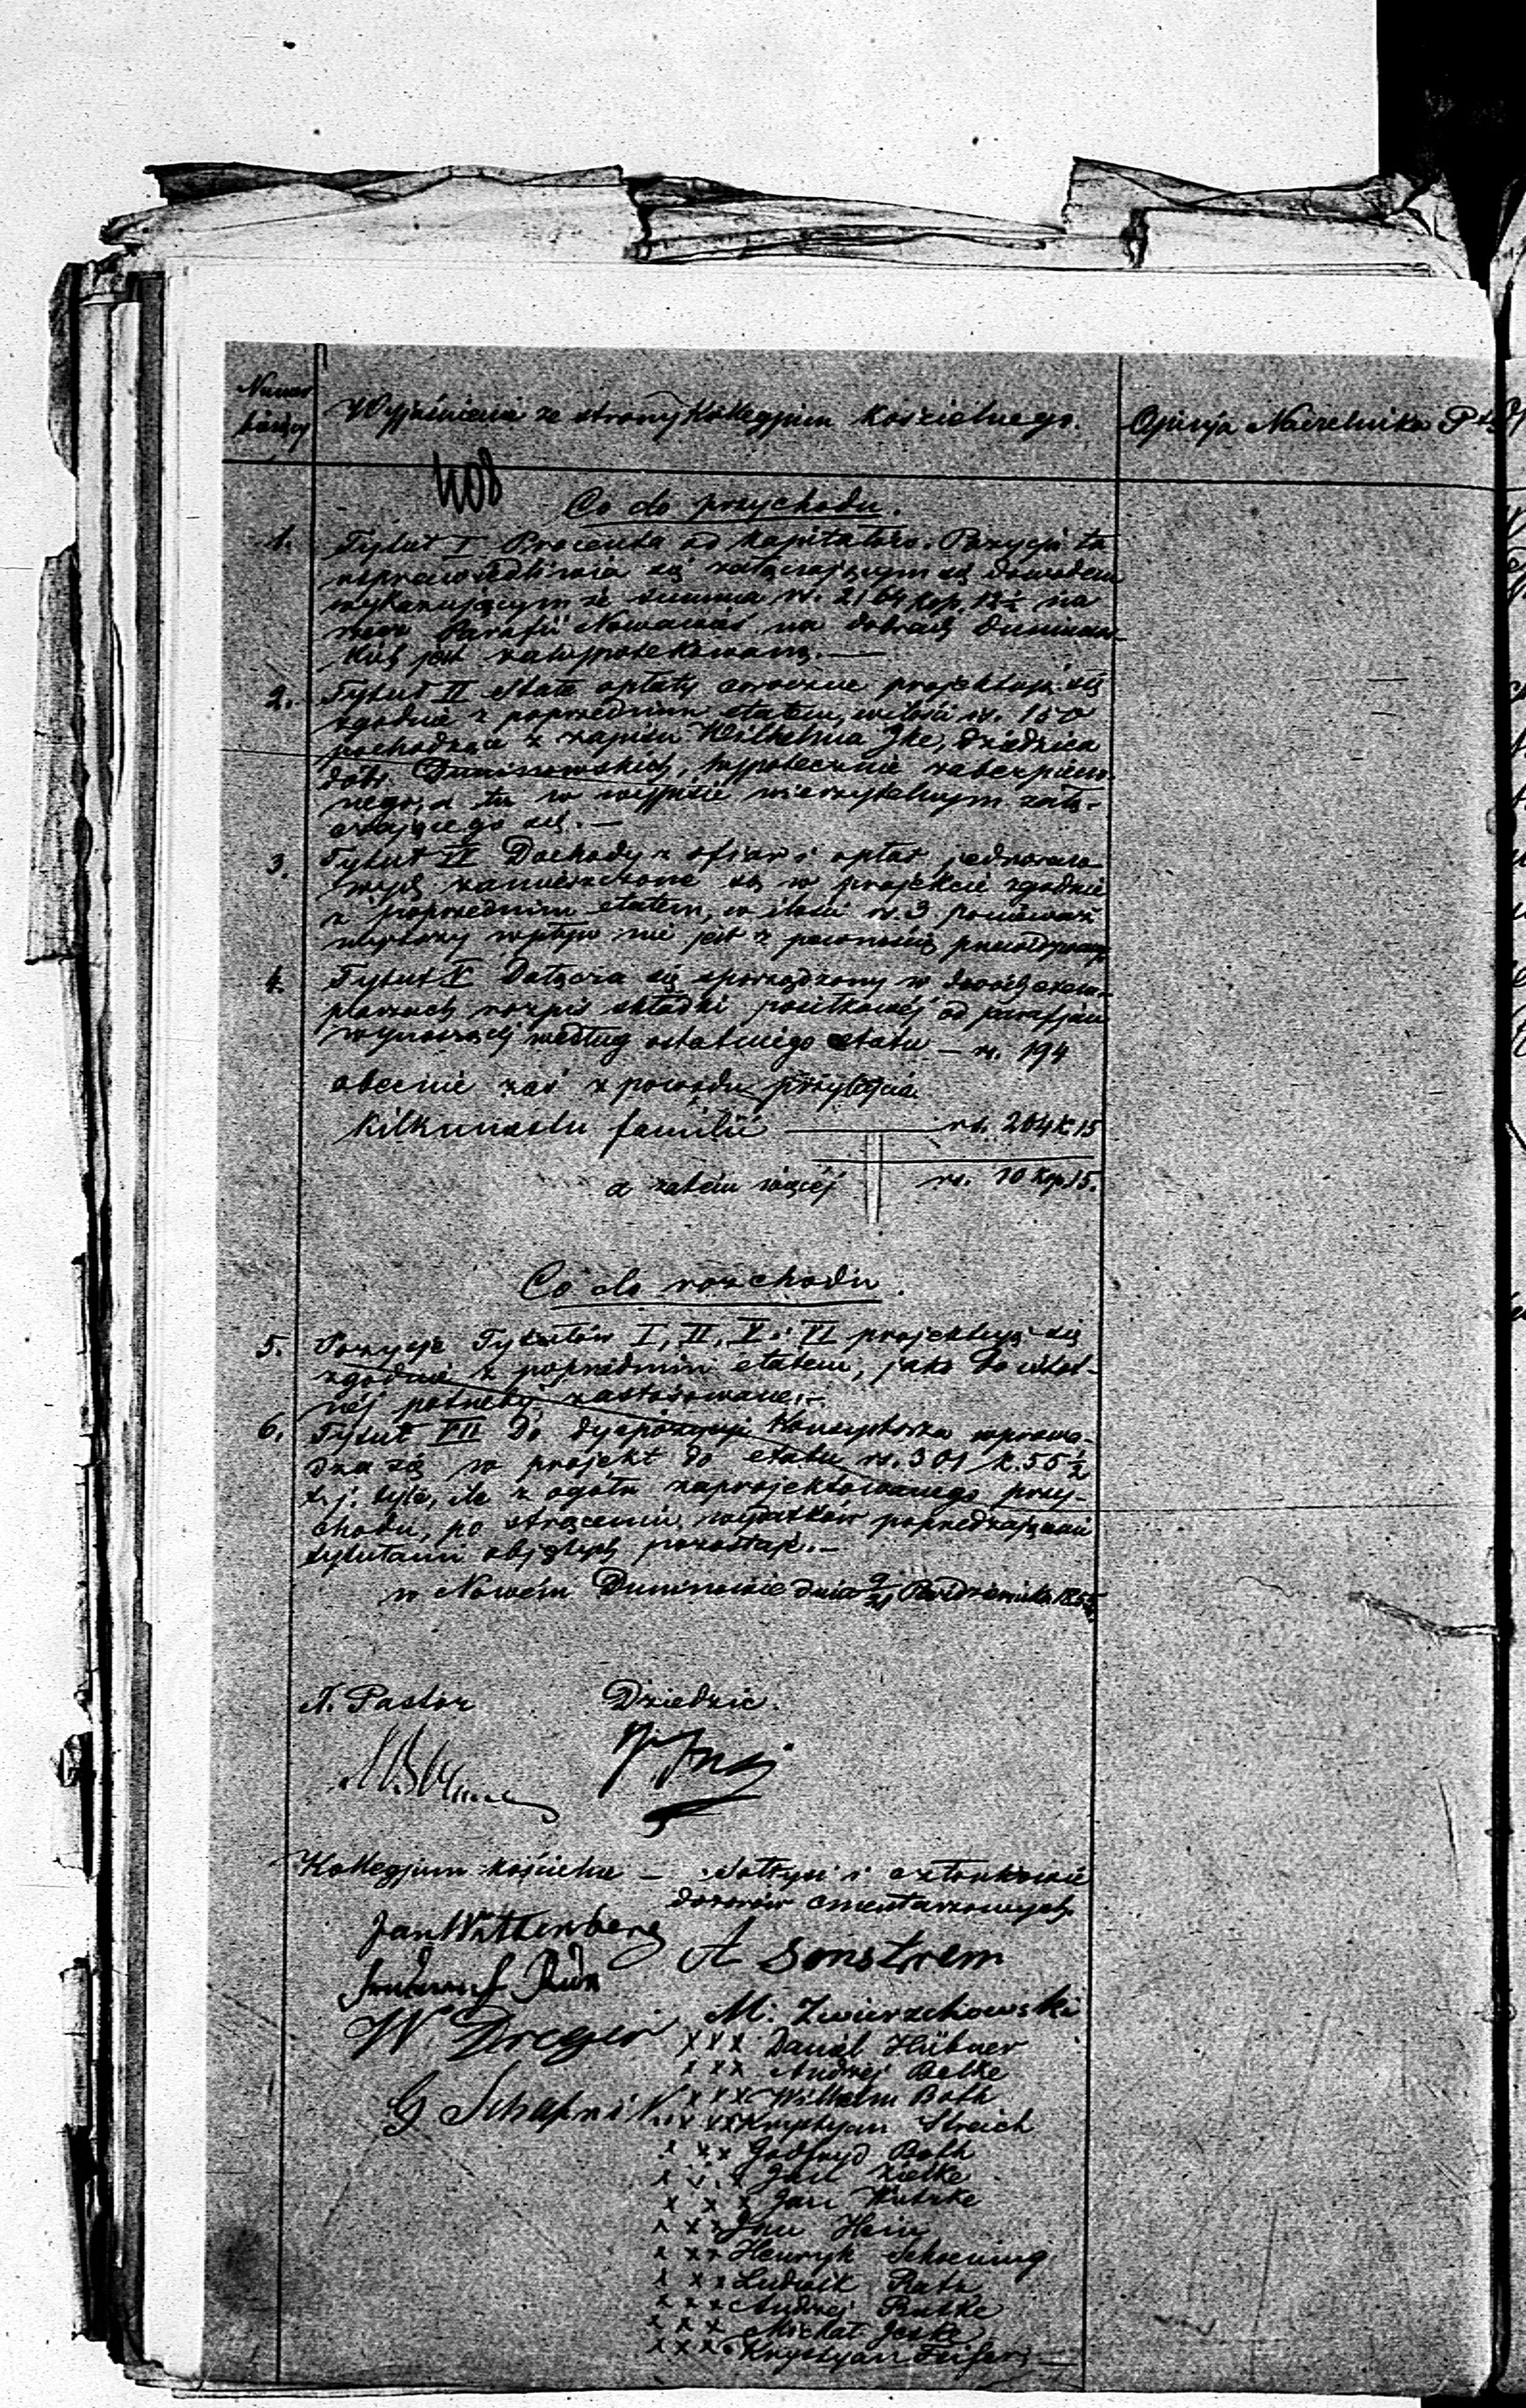 Numer Wyjaśnienia ze strony Kollegjum kościelnego. Opinja Naczelnika Ptu
bieżący
408
Co do przychodu.
1. Tytuł I Procenta od kapitałów. Pozycja ta
usprawiedliwia się załączającym się dowodem
wykazującym że summa rs. 2164 kop. 12½ na
rzecz Parafii Nowawieś na dobrach Duninow-
skich jest zahypotekowaną.—
2. Tytuł II Stałe opłaty coroczne projektują się
zgodnie z poprzednim etatem, w ilości rs. 150
pochodzące z zapisu Wilhelma Ike, dziedzica
dóbr Duninowskich, hypotecznie zabezpieczo-
nego, a tu w wypisie wierzytelnym załą-
czającego się.—
3. Tytuł IV Dochody z ofiar i opłat jednorazo-
wych zamieszczone są w projekcie zgodnie
z poprzednim etatem, w ilości rs. 3 ponieważ
wyższy wpływ nie jest z pewnością
4. Tytuł V Dołącza się sporządzony w dwóch exem-
plarzach rozpis składki posiłkowéj od parafjan
wynoszącej według ostatniego etatu — rs. 194
obecnie zaś z powodu przybycia
kilkunastu familii rs. 204 k. 15
a zatém więcéj rs. 10 kop. 15.
Co do rozchodu.
5. Pozycje Tytułów I, II, V i VI projektują się
zgodnie z poprzednim etatem, jako do istot-
néj potrzeby zastosowane.—
6. Tytuł VII Do dyspozycji Konsystorza wprowa-
dza się w projekt do etatu rs. 301 k. 55½
t. j. tyle, ile z ogółu zaprojektowanego przy-
chodu, po strąceniu wydatków poprzedzającemi
tytułami objętych pozostaje.—
w Nowém Duninowie dnia 9/21 Października 1855
Pastor Dziedzic.
Kollegjum kościelne — Sołtysi i członkowie
dozorów cmentarzowych
Jan Wittenberg
A Sonstrem
W Dreger
M. Zwierzchowski
xxx Daniel Hübner
xxx Andrzej Belke
G Schapnik
xxx Wilhelm Both
xxx Krystyan Streich
xxx Godfryd Both
xxx Jan Zielke
xxx Jan Wutzke
xxx Jan Hein
xxx Henryk Schoening
xxx Ludwik Ratz
xxx Andrzej Radke
xxx Michał Jeske
xxx Krystyan Feifer